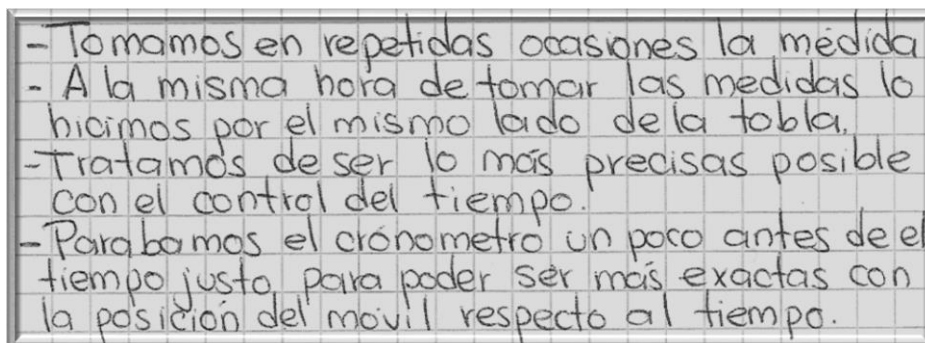 - Tomamos en repetidas ocasiones la médida
- A la misma hora de tomar las medidas lo
hicimos por el mismo lado de la tabla.
- Tratamos de ser lo más precisas posible
con el control del tiempo.
- Parabamos el crónometro un poco antes de el
tiempo justo para poder ser más exactas con
la posición del movil respecto al tiempo.